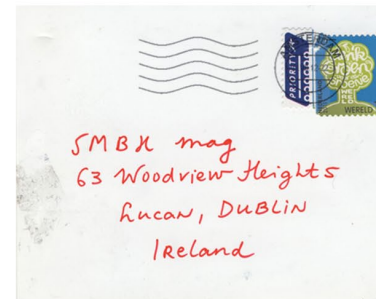 AMSTERDAM
PRIORITY
WERELD
SMBH mag
63 Woodview Heights
Lucan, DUBLIN
Ireland